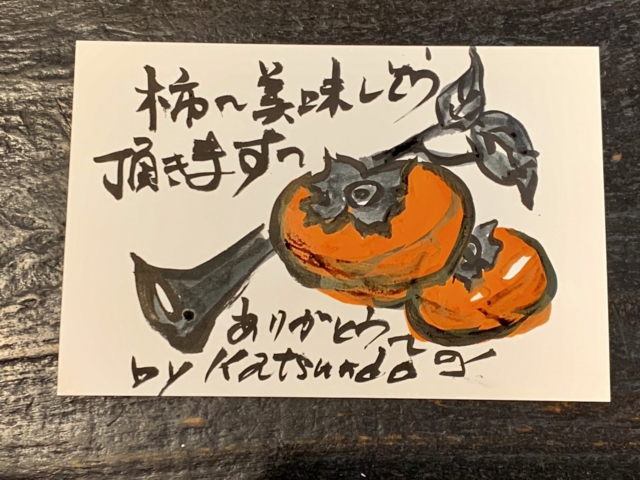 柿〜美味しそう
頂きます〜
ありがとう〜
by Katsundo